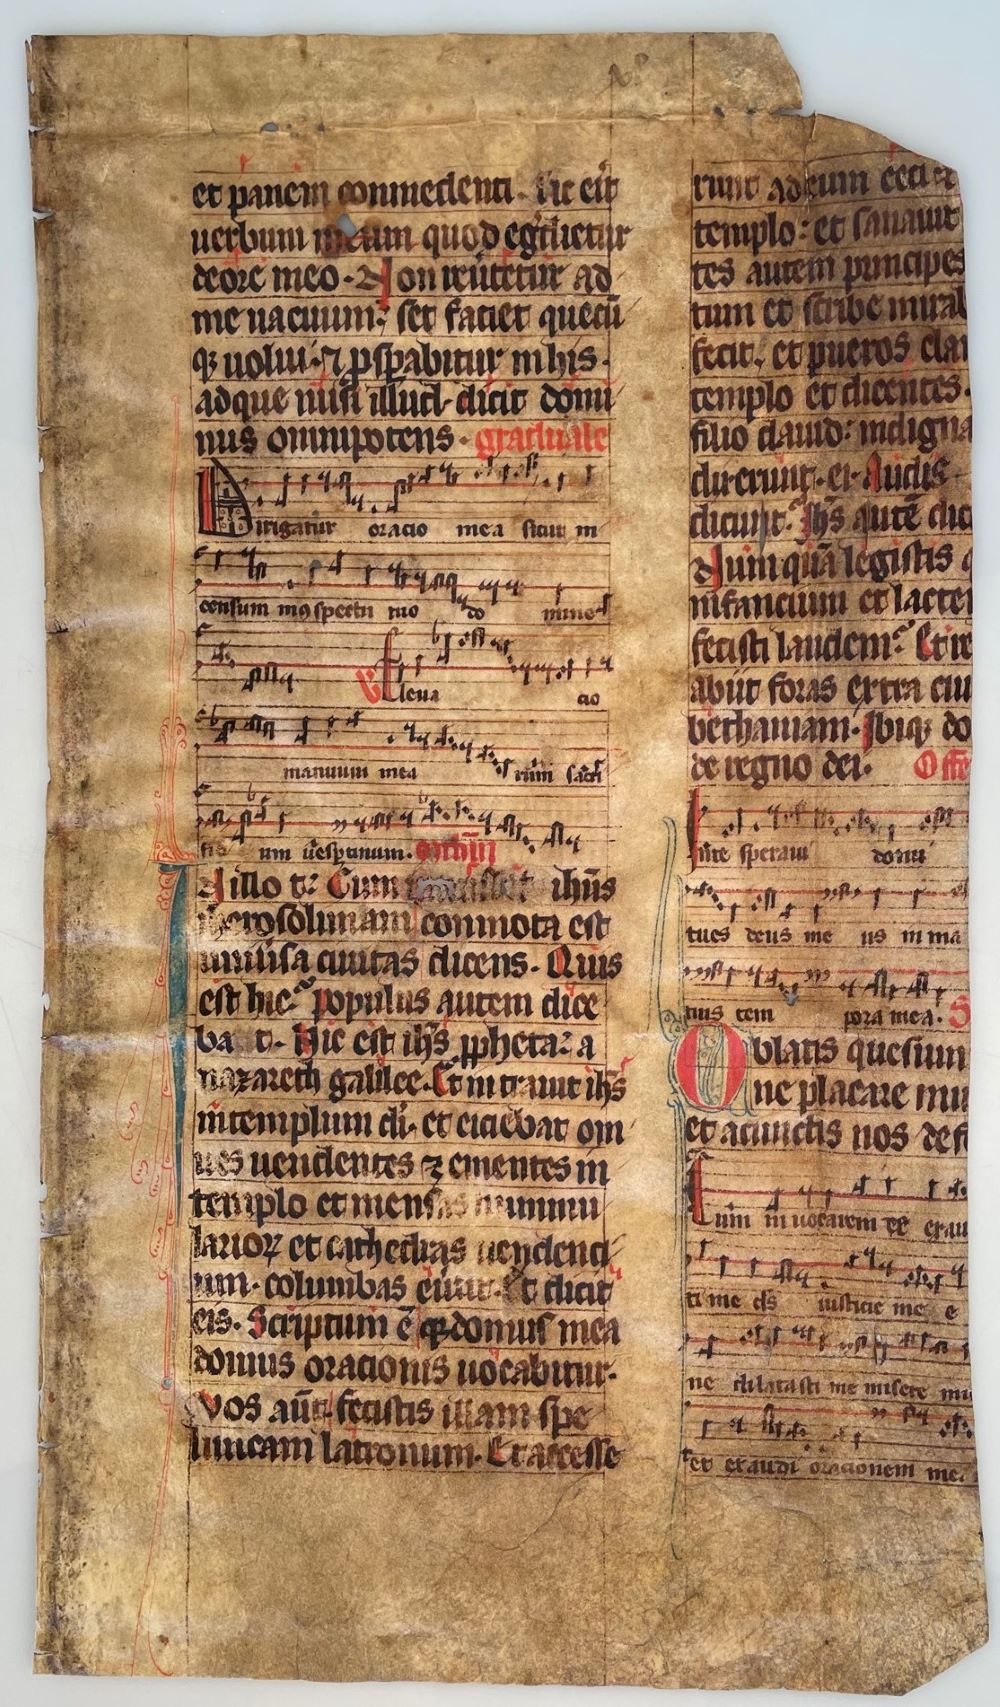 et panem commedenti. Sic erit
uerbum meum quod egrdietur
deore meo. Non reutetur ad
me uacuum: set faciet quecu
qz uolui. ⁊ pspabitur in his.
adque misi illud. dicit domi
nus omnipotens. graduale
Dirigatur oracio mea sicut in
censum in conspectu tuo do mine
V Eleua cio
manuum mea rum sacri
fici um uespertinum.
In illo tr Cum ihus
iherosolimam commota est
uniuisa ciuitas dicens. Quis
est hic? populus autem dice
ba t. Hic est ihs ppheta a
nazareth galilee. Et intrauit ihs
in templum di. et eiciebat om
nes uendentes ⁊ ementes in
templo et mensas nummu
larioꝝ et cathedras uendenti
um. columbas euertit. Et dicit
eis. Scriptum e qz domus mea
domus oracionis uocabitur.
Vos aut fecistis illam spe
luncam latronum. Et accesse
runt ad eum ceci et
templo: et sanauit
tes autem principes
tum et scribe mirab
fecit. et pueros clam
templo et dicentes.
filio dauid: indigna
dixerunt. ei Audis
dicunt? Ihs aute dic
Numqua legistis q
infancium et lacten
fecisti laudem? Et re
abiit foras extra ciu
bethaniam. Ibiqz do
de regno dei. Offe
In te speraui domi
tues deus me us in ma
tuis tem pora mea. S
Oblatis quesum
ne placare mun
et acunctis nos def
Cum in uocarem te exau
ti me ds iusticie me e
ne dilatasti me misere mi
et exaudi oracionem me